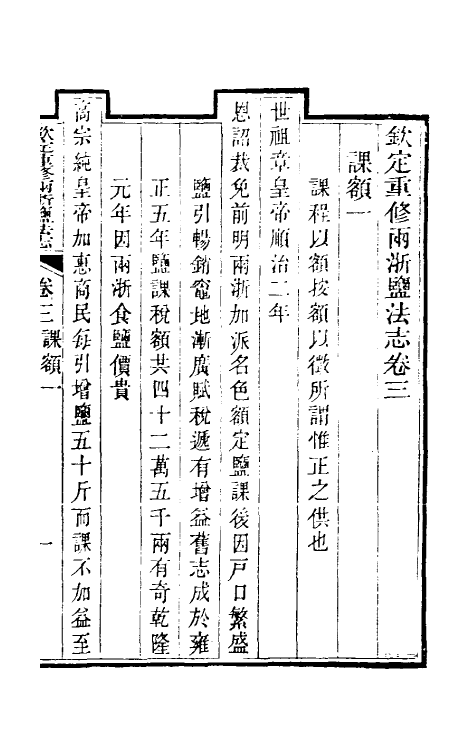 欽定重修兩浙鹽法志卷三
課額一
課程以額按額以徵所謂惟正之供也
世祖章皇帝順治二年
恩詔裁免前明兩浙加派名色額定鹽課後因戸口繁盛
鹽引暢銷竈地漸廣賦稅遞有增益舊志成於雍
正五年鹽課稅額共四十二萬五千兩有奇乾隆
元年因兩浙食鹽價貴
高宗純皇帝加惠商民每引增鹽五十斤而課不加益至
欽定重修兩浙鹽法志 卷三 課額一 一